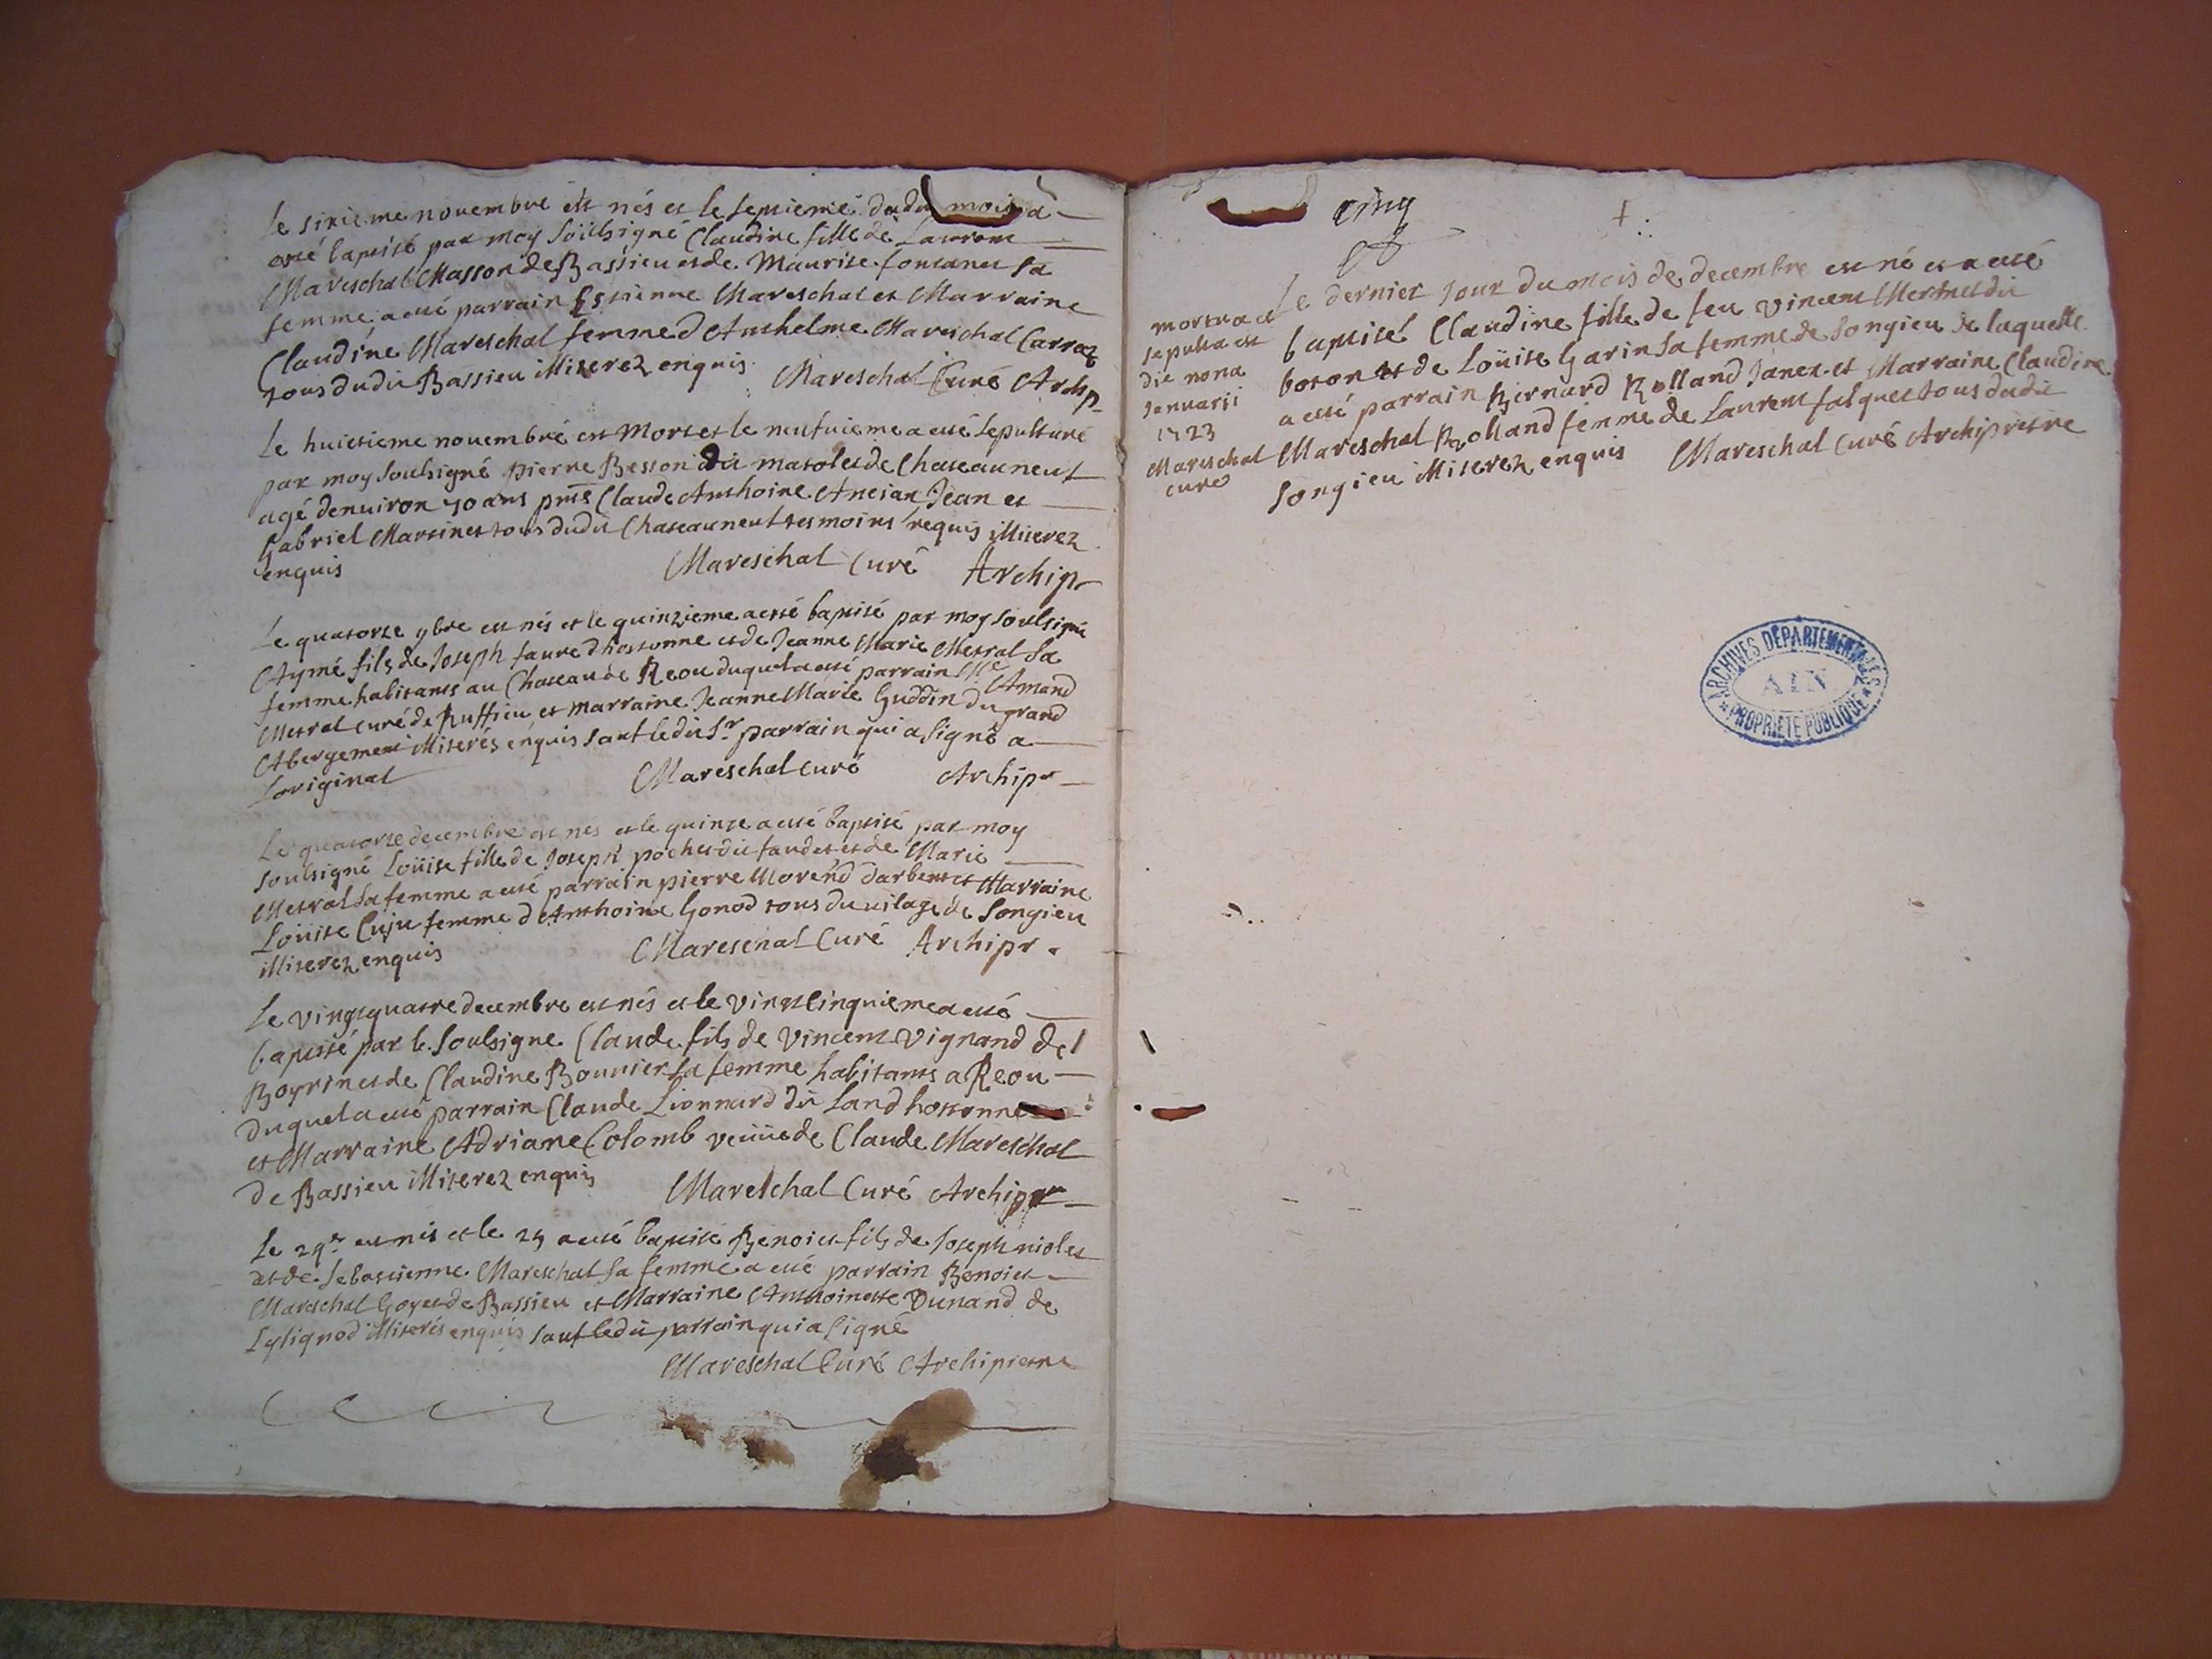 Le sixieme novembre est nés et le septieme dudit mois a
esté baptisé par moy soubsigné Claudine fille de Laurent
Mareschal Masson de Bassieu et de Maurise fontanet sa
femme a esté parrain Estienne Mareschal et Marraine
Claudine Mareschal femme d Anthelme Mareschal Carraz
tous dudit Bassieu illiterez enquis
Mareschal Curé Archip
Le huictieme novembre est Mort et le neufuieme a esté sepulturé
par moy soubsigné pierre Besson dit matolet de Chateauneuf
agé denuiron 70 ans pnts Claude Anthoine Ancian Jean et
Gabriel Martinet tous dudit Chateauneuf tesmoins requis illiterez
enquis
Mareschal Curé Archip
Le quatorze 9bre est nés et le quinzieme a esté baptisé par moy soubsigné
Aymé fils de Joseph faure dhotonne et de Jeanne Marie Metral sa
femme habitants au Chateau de Reou duquel a esté parrain Mre Amand
Metral curé de Ruffieu et marraine Jeanne Marie Guddin du grand
Abergement illiterés enquis sauf ledit Sr parrain qui a signé a
Loriginal
Mareschal curé Archipr
Le quatorze decembre est nés et le quinze a esté baptisé par moy
soubsigné Loüise fille de Joseph pochet dit faudet et de Marie
Metral sa femme a esté parrain pierre Morend darbent et Marraine
Loüise Cuju femme d Anthoine Gonod tous du uilage de Songieu
illiterez enquis
Mareschal Curé Archipr.
Le vingtquatre decembre est nés et le vingtcinquieme a esté
baptisé par le soubsigne Claude fils de Vincent Vignand de
Boyrin et de Claudine Bouuier sa femme habitants a Reou
duquel a esté parrain Claude Lionnard dit Land hotonne
et Marraine Adriane Colomb veüue de Claude Mareschal
de Bassieu illiterez enquis
Mareschal Curé Archipr
Le 29e est nés et le 29 a esté baptisé Benoict fils de Joseph uiolet
et de Sebastienne Mareschal sa femme a esté parrain Benoict
Mareschal Goyet de Bassieu et Marraine Anthoinette Dunand de
Sylignod illiterés enquis sauf ledit parrain qui a signé
Mareschal Curé Archipretre
cinq
mortua
sepulta est
die nona
Januarii
1723
Mareschal
curé
Le dernier Jour du mois de decembre est né et a esté
baptisé Claudine fille de feu vincent Mertnet dit
boron et de Loüise Garin sa femme de Songieu de laquelle
a esté parrain Bernard Rolland Janet et Marraine Claudine
Mareschal Rolland femme de Laurent falquet tous dudit
songieu illiterez enquis Mareschal Curé Archipretre
ARCHIVES DEPARTEMENTALES
AIN
PROPRIETE PUBLIQUE